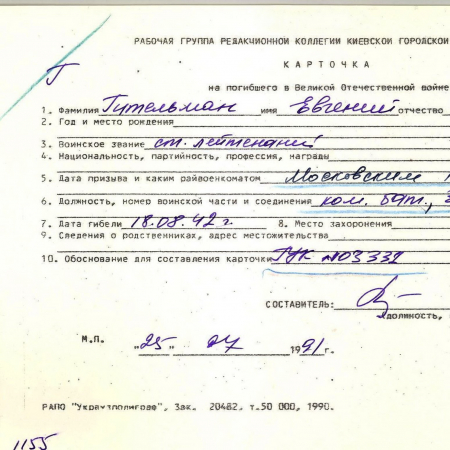 РАБОЧАЯ ГРУППА РЕДАКЦИОННОЙ КОЛЛЕГИИ КИЕВСКОЙ ГОРОДСКОЙ
Г
КАРТОЧКА
на погибшего в Великой Отечественной войне
1. Фамилия Гительман имя Евгений отчество
2. Год и место рождения
3. Воинское звание ст. лейтенант
4. Национальность, партийность, профессия, награды
5. Дата призыва и каким райвоенкоматом Московским
6. Должность, номер воинской части и соединения ком. бат.,
7. Дата гибели 18.08.42 г. 8. Место захоронения
9. Сведения о родственниках, адрес местожительства
10. Обоснование для составления карточки ГУК №03339
СОСТАВИТЕЛЬ:
(должность,
М.П. "25" 04 1991г.
РАПО "Укрвуполиграф", Зак. 20482, т.50 000, 1990.
1155